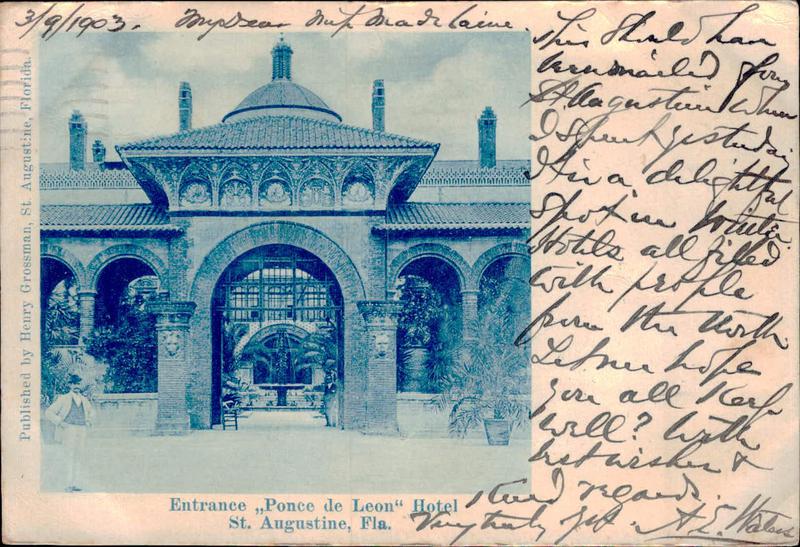 3/9/1903. My Dear Miss Madelaine.
This Should have
been mailed from
St. Augustine when
I spent yesterday
It is a delightful
spot in Winter
Hotels all filled
with people
from the North
Let me hope
you all Keep
well? With
best wishes &
kind regards.
Very truly yrs. A. E. Waters
Published by Henry Grossman, St. Augustine, Florida.
Entrance „Ponce de Leon“ Hotel
St. Augustine, Fla.